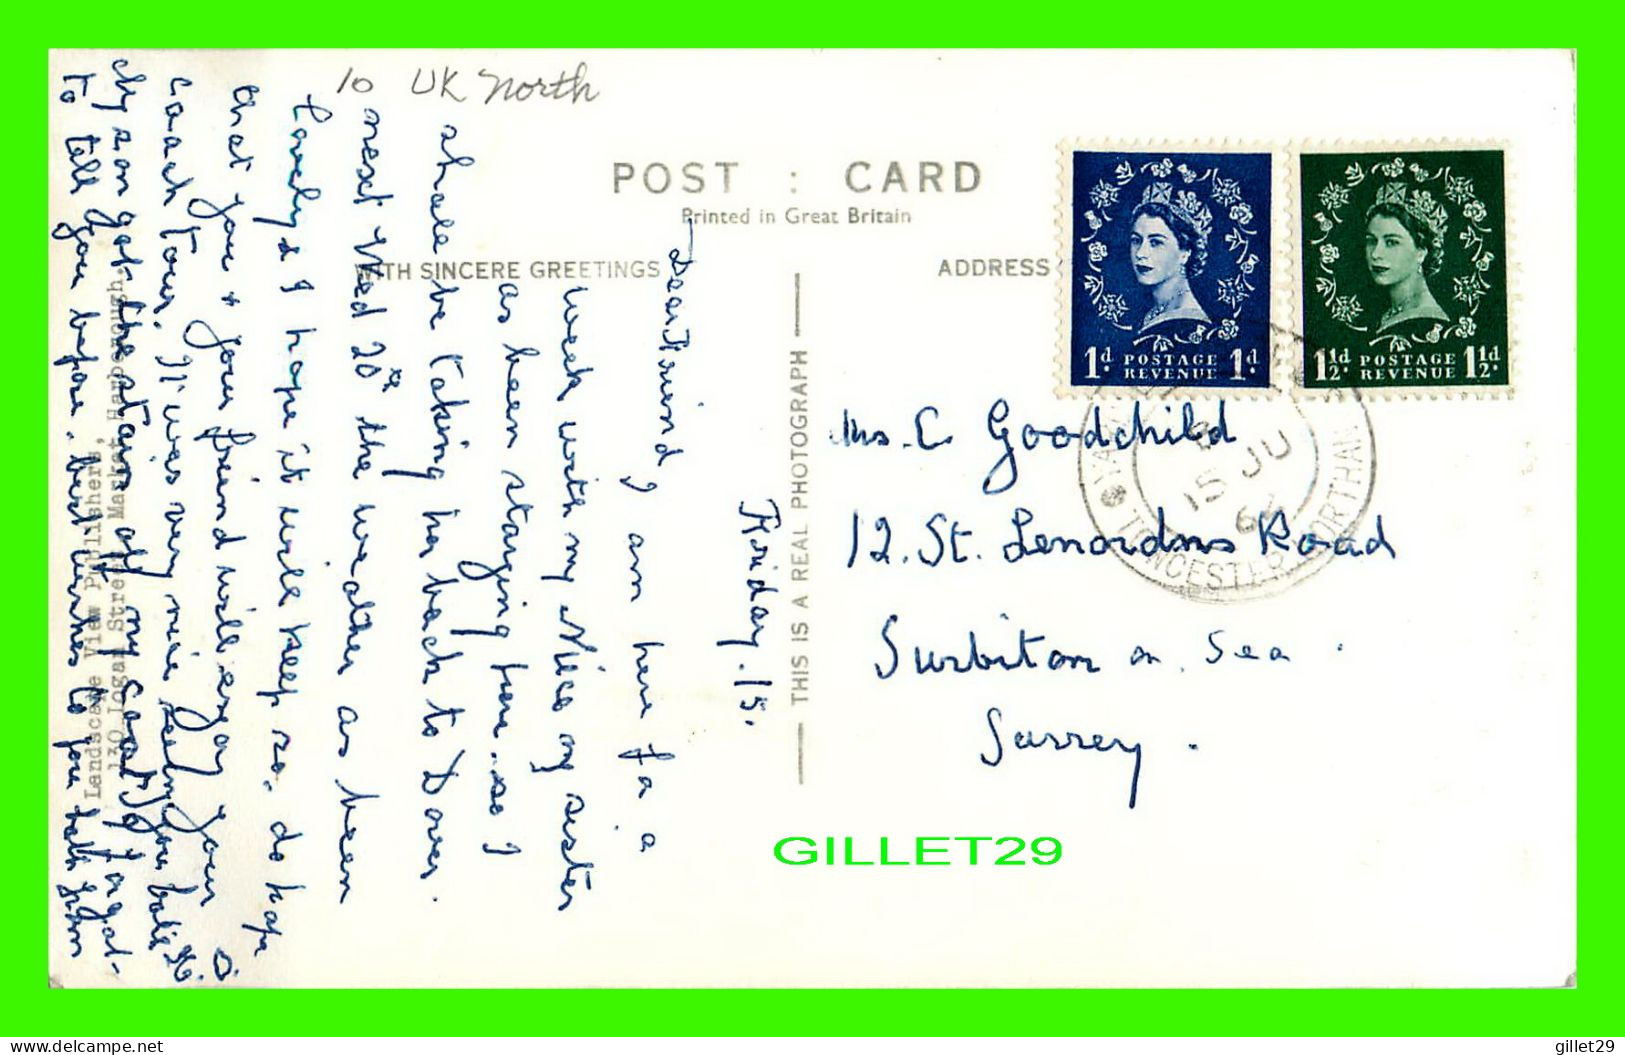 10 UK North
POST : CARD
Printed in Great Britain
WITH SINCERE GREETINGS
ADDRESS
1d POSTAGE REVENUE 1d
1½d POSTAGE REVENUE 1½d
15 JU
TOWCESTER. NORTHAN
THIS IS A REAL PHOTOGRAPH
Friday. 15.
Dear Friend, I am here fo a
week with my Niece my sister
as been staying here. so I
shall be taking her back to Dover.
next Wed 20th the weather as been
Lovely & I hope it will keep so. do hope
that you & your friend will enjoy your
coach Tour. It was very nice seeing you both
my son got the stain off my coat I forgot-
to tell you before. best wishes to you both from
Landscape View Publishers,
130 Logan Street, Market Harborough.
Mrs. C. Goodchild
12. St. Lenordms Road
Surbiton on. Sea.
Surrey.
GILLET29
delcampe.net
gillet29